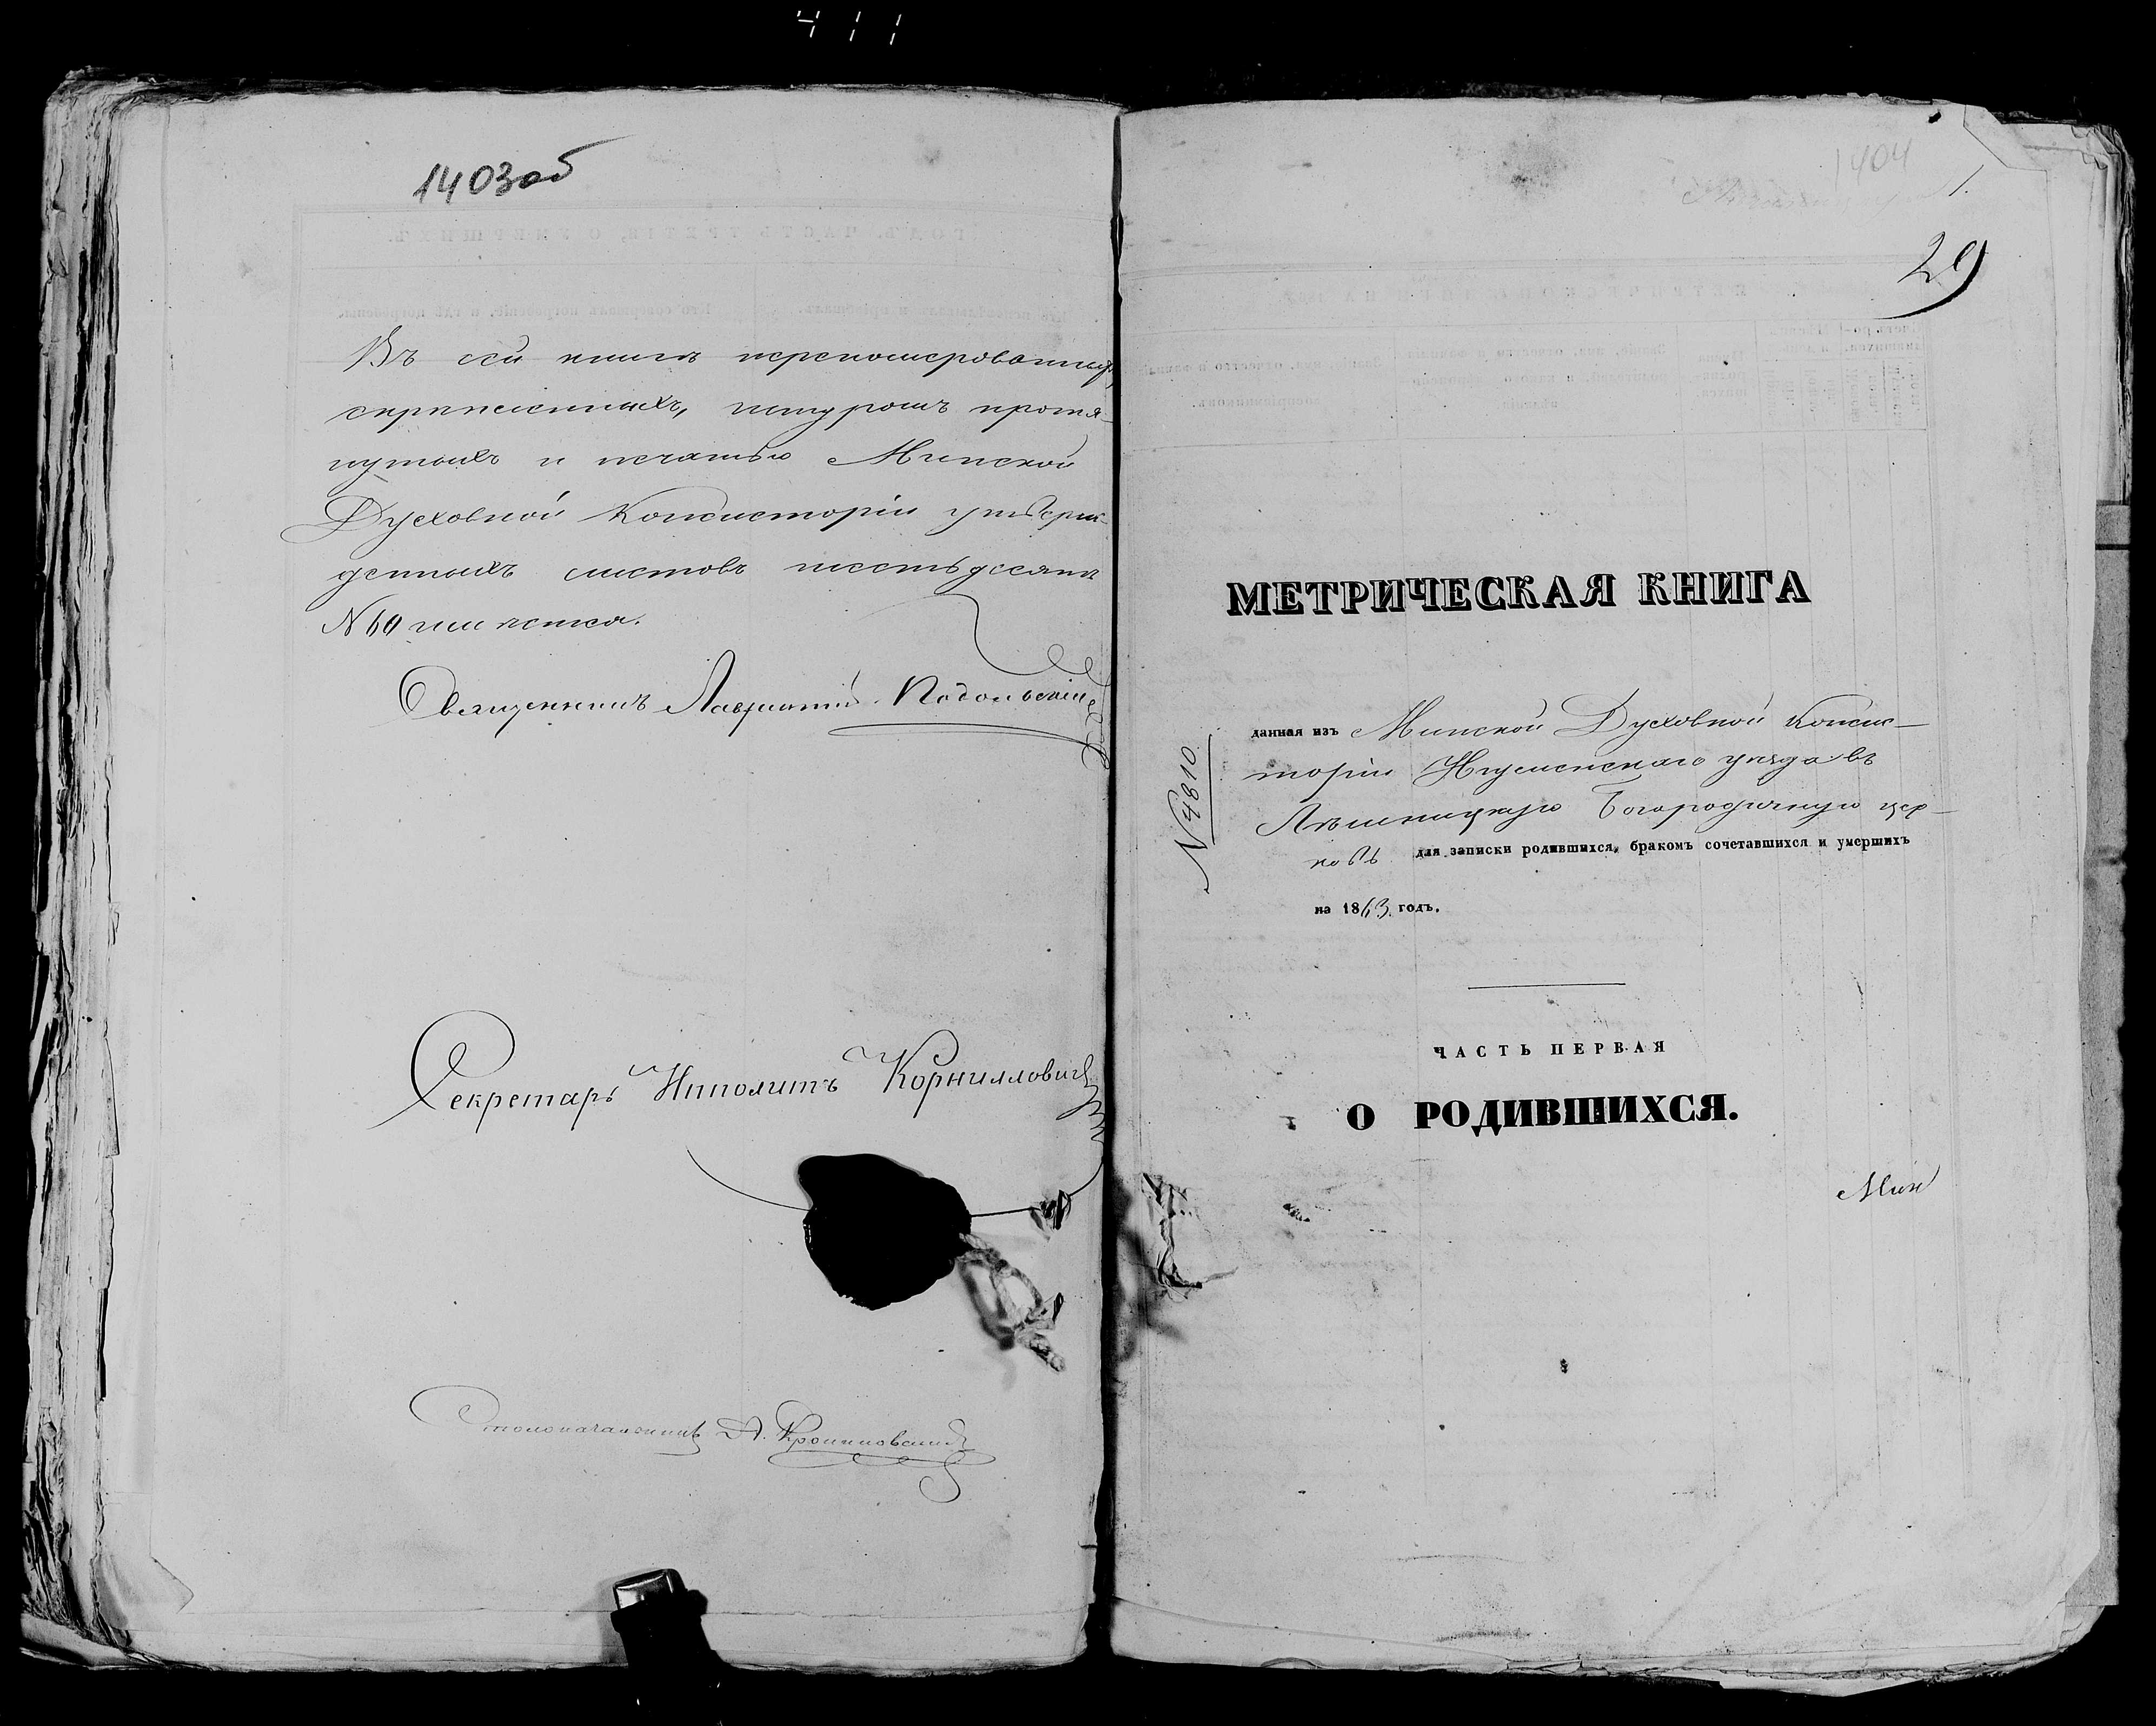 411
1403об
Въ сей книгѣ переномерованныхъ,
скрѣпленныхъ, шнуромъ протя-
нутыхъ и печатью Минской
Духовной Консисторіи утверж-
денныхъ листовъ шестьдесятъ
N 60
Священникъ Лаврентій Подольскій
Секретарь Ипполитъ Корниловичъ
Столоначальникъ
1404
1.
29
МЕТРИЧЕСКАЯ КНИГА
данная изъ Минской Духовной Консис-
торіи Игуменскаго уѣзда въ
Богородичную цер-
ковь для записки родившихся, бракомъ сочетавшихся и умершихъ
на 1863 годъ.
N 4810
ЧАСТЬ ПЕРВАЯ
О РОДИВШИХСЯ.
Мин